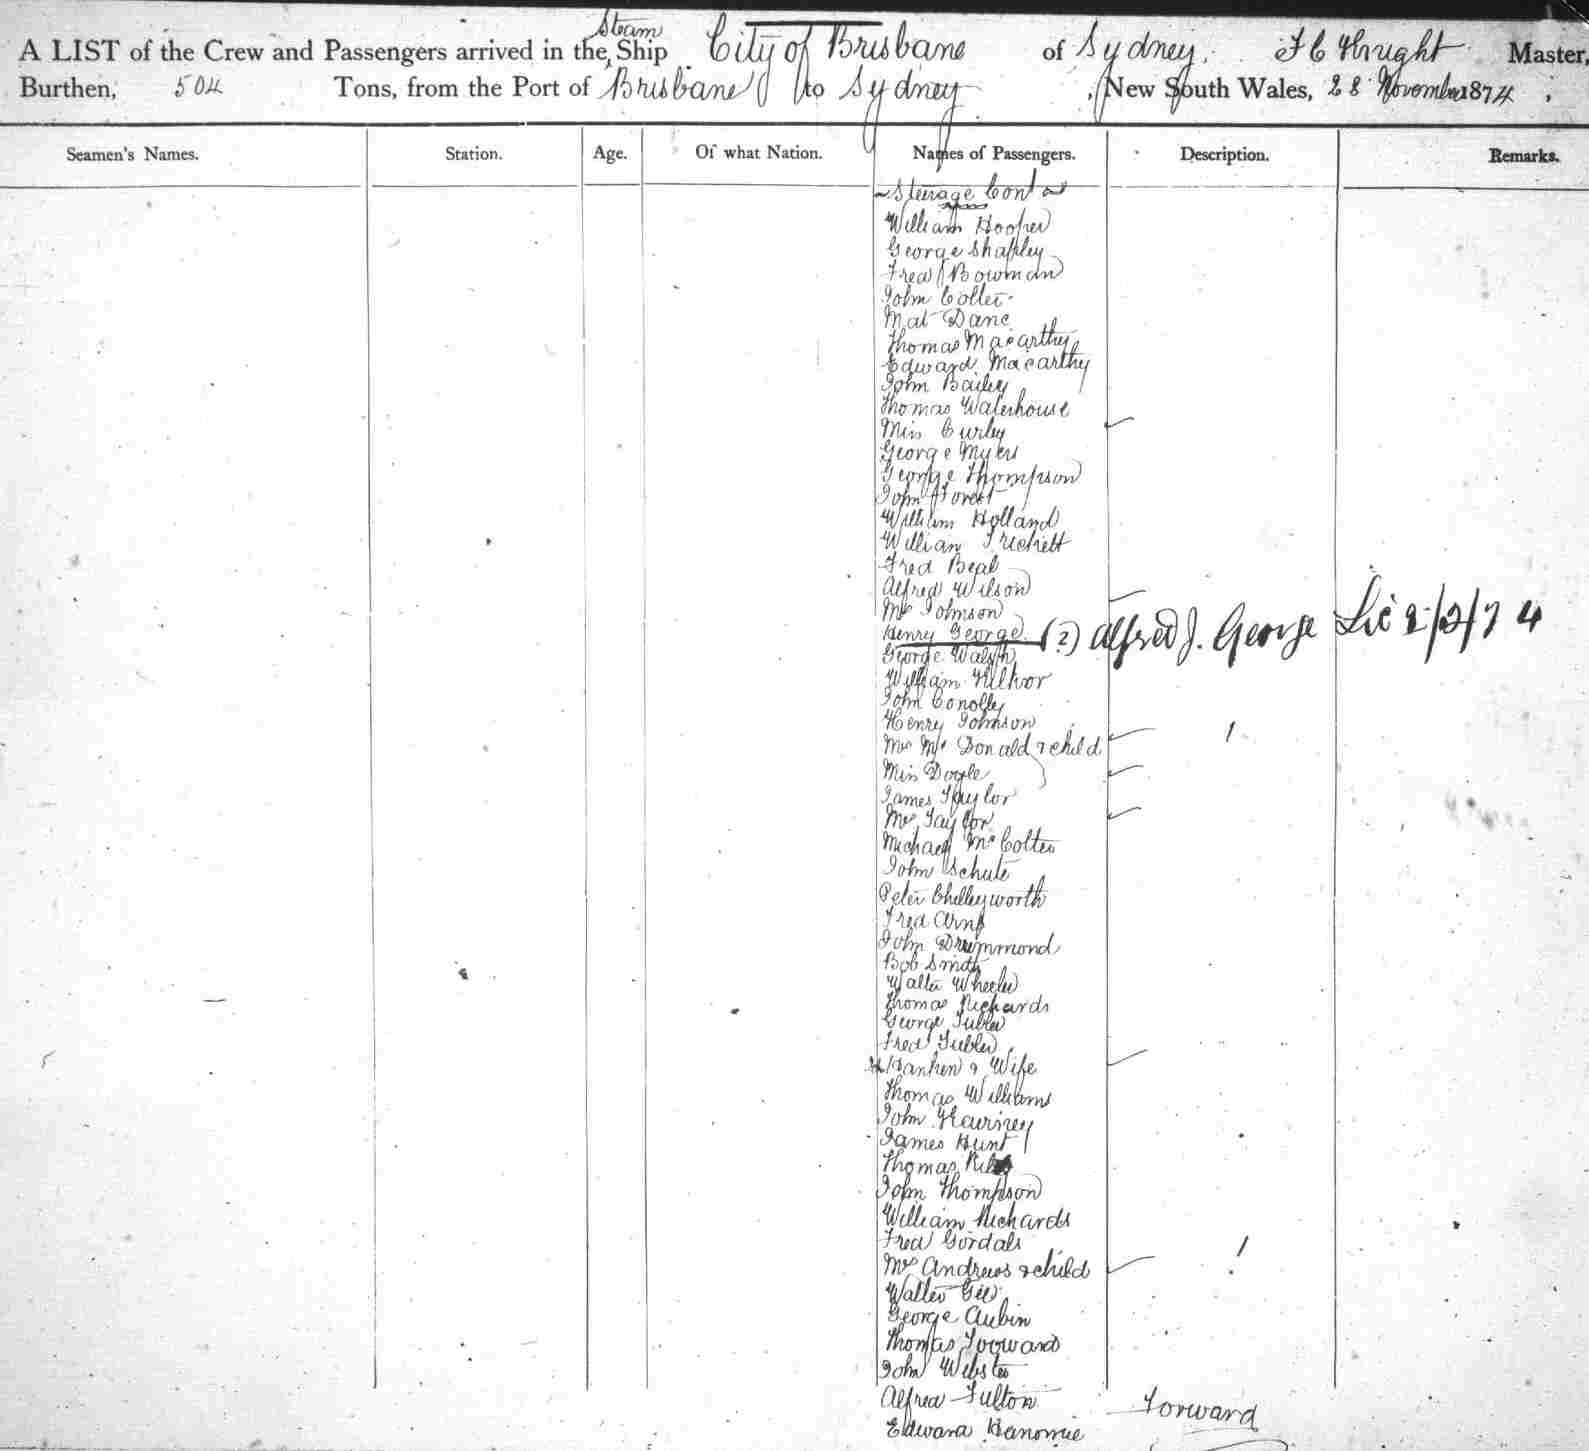 A LIST of the Crew and Passengers arrived in the Steam Ship City of Brisbane of Sydney, Knight Master,
Burthen, 504 Tons, from the Port of Brisbane to Sydney, New South Wales, 28 November 1874,
Seamen's Names. Station. Age. Of what Nation. Names of Passengers. Description. Remarks.
Steerage Cont
William Hooper
George Shapley
Fred Bowman
John Colter
Mat Dane
Thomas Macarthy
Edward Macarthy
John Bailey
Thomas Waterhouse
Miss Curley
George Myers
George Thompson
John Forest
William Holland
William Trickett
Fred Beal
Alfred Wilson
Mrs Johnson
Henry George (?) Alfred J. George Lic 2/2/74
George Walsh
William
John Conolly
Henry Johnson
Mrs Mc Donald & child 1
Miss Doyle
James Taylor
Mrs Taylor
Michael McColter
John Schute
Peter Chelleyworth
Fred Arny
John Drummond
Bob Smith
Walter Wheeler
Thomas Richards
George Tubler
Fred Tubler
Ranken & Wife
Thomas Williams
John Kearney
James Hunt
Thomas
John Thompson
William Richards
Fred Gordals
Mrs Andrews & child 1
Walter Gee
George Aubin
Thomas
John Webster
Alfred Fulton Forward
Edward